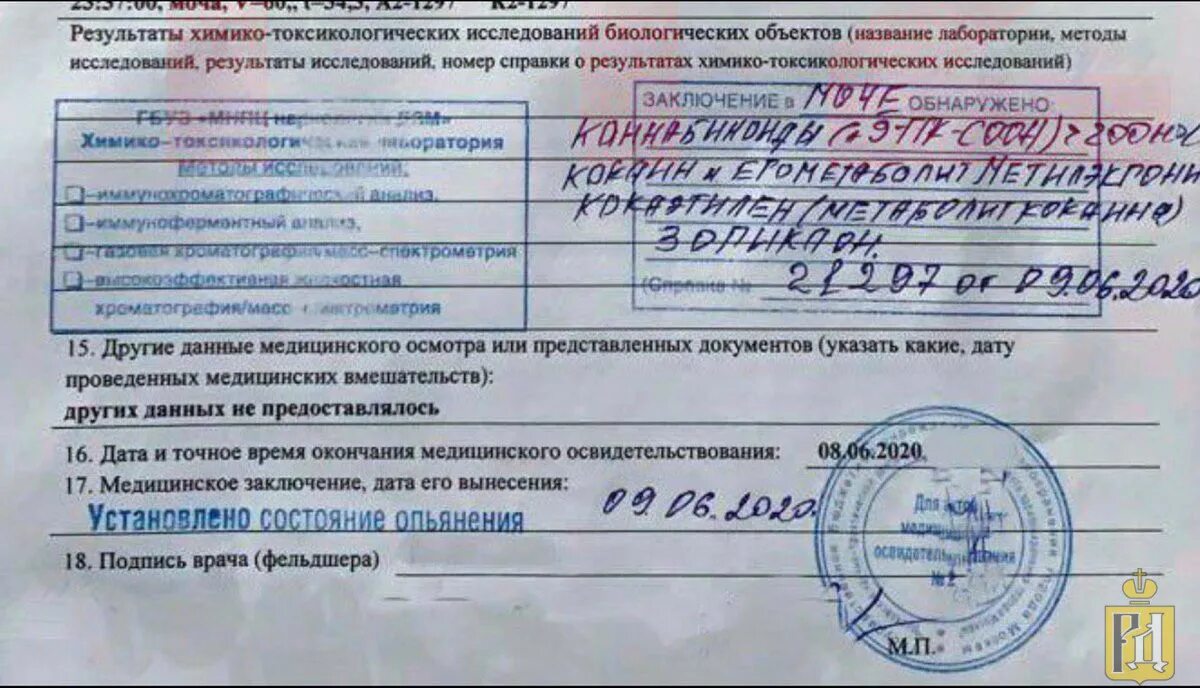 23:37:00, моча, V=60,, t=34,5, А2-1297 К2-1297
Результаты химико-токсикологических исследований биологических объектов (название лаборатории, методы
исследований, результаты исследований, номер справки о результатах химико-токсикологических исследований)
ГБУЗ «МНПЦ наркологии ДЗМ»
Химико-токсикологическая лаборатория
Методы исследований:
–иммунохроматографический анализ,
–иммуноферментный анализ,
–газовая хроматография/масс-спектрометрия
–высокоэффективная жидкостная
хроматография/масс-спектрометрия
ЗАКЛЮЧЕНИЕ в МОЧЕ ОБНАРУЖЕНО:
КАННАБИНОИДЫ
КОКАИН И ЕГО МЕТАБОЛИТ МЕТИЛЭКГОНИ
КОКАЭТИЛЕН (МЕТАБОЛИТ КОКАИНА)
ЗОПИКЛОН.
(Справка № 21297 от 09.06.2020
15. Другие данные медицинского осмотра или представленных документов (указать какие, дату
проведенных медицинских вмешательств):
других данных не предоставлялось
16. Дата и точное время окончания медицинского освидетельствования: 08.06.2020
17. Медицинское заключение, дата его вынесения:
Установлено состояние опьянения 09.06.2020.
18. Подпись врача (фельдшера)
Для актов
медицинского
освидетельствования
М.П.
РД